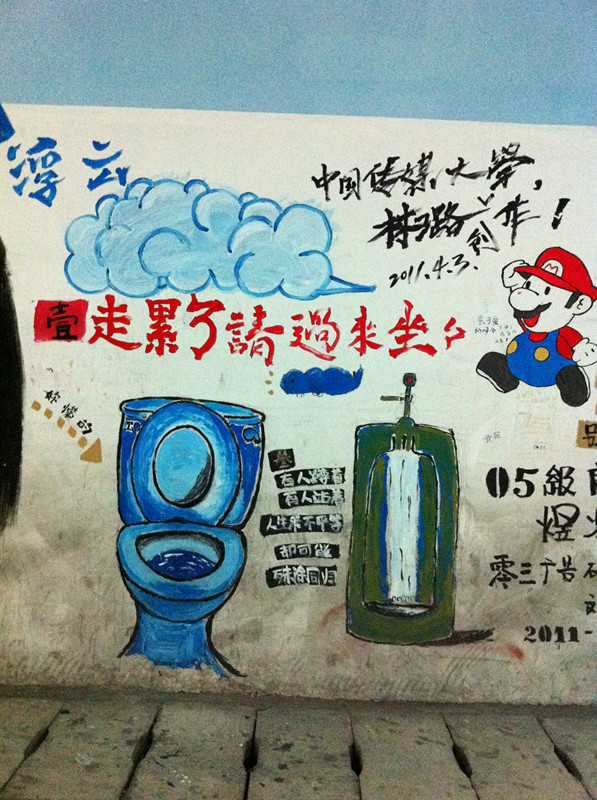 浮云
中国传媒大學,
2011.4.3.
M
壹 走累了請過來坐
有人蹲着
有人站着
人生来不平等
却可能
殊途同归
05級
煜
零三广告
2011-